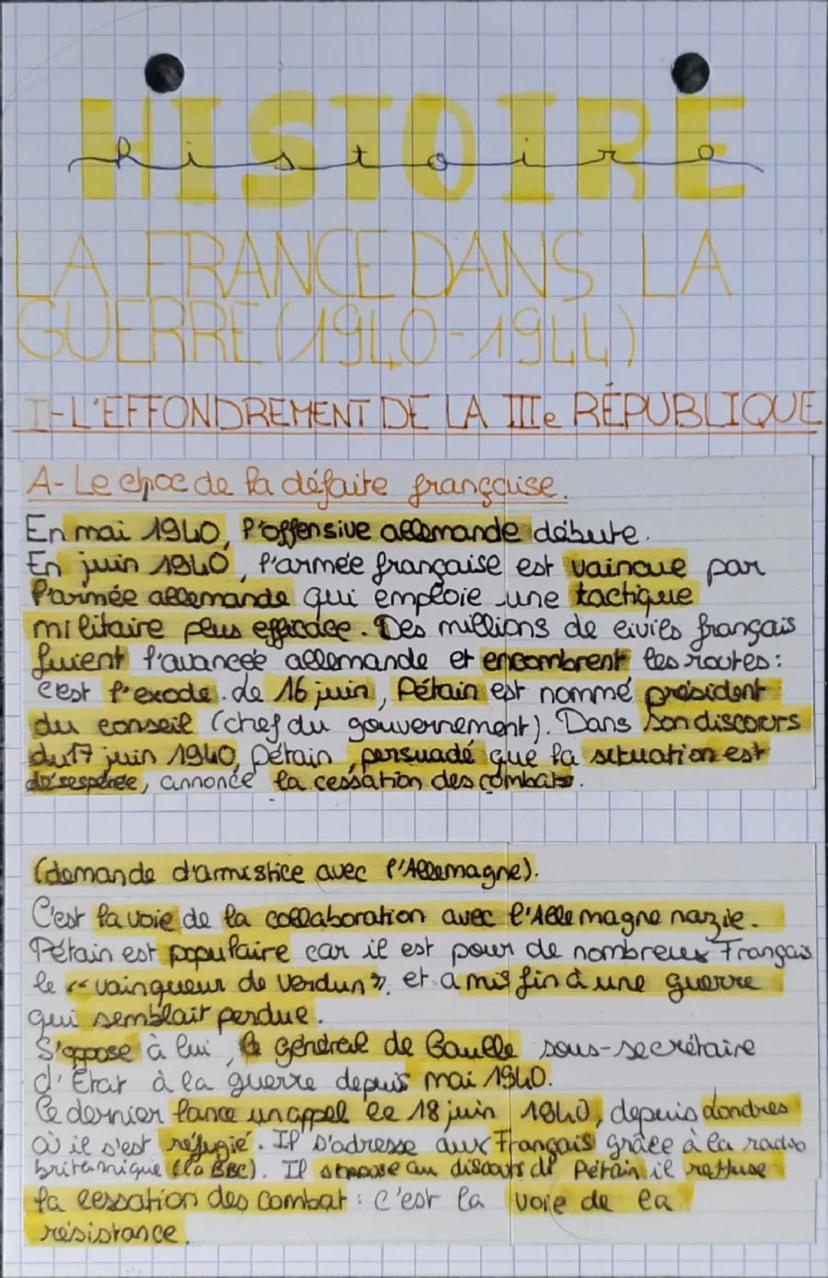 HISTOIRE
histoire
LA FRANCE DANS LA
GUERRE (1940-1944)
I-L'EFFONDREMENT DE LA IIIe RÉPUBLIQUE
A- Le choc de la défaite française.
En mai 1940, l'offensive allemande débute.
En juin 1940, l'armée française est vaincue par
l'armée allemande qui emploie une tactique
militaire plus efficace. Des millions de civils français
fuient l'avancée allemande et encombrent les routes:
c'est l'exode. de 16 juin, Pétain est nommé président
du conseil (chef du gouvernement). Dans son discours
du 17 juin 1940, Pétain, persuadé que la situation est
désespérée, annonce la cessation des combats.
(demande d'armistice avec l'Allemagne).
C'est la voie de la collaboration avec l'Allemagne nazie.
Pétain est populaire car il est pour de nombreux Français
le "vainqueur de Verdun", et a mis fin à une guerre
qui semblait perdue.
S'oppose à lui, le général de Gaulle sous-secrétaire
d'Etat à la guerre depuis mai 1940.
Ce dernier lance un appel le 18 juin 1940, depuis Londres
où il s'est réfugié. Il s'adresse aux Français grâce à la radio
britannique (la BBC). Il s'oppose au discours de Pétain il refuse
la cessation des combat: c'est la voie de la
résistance.